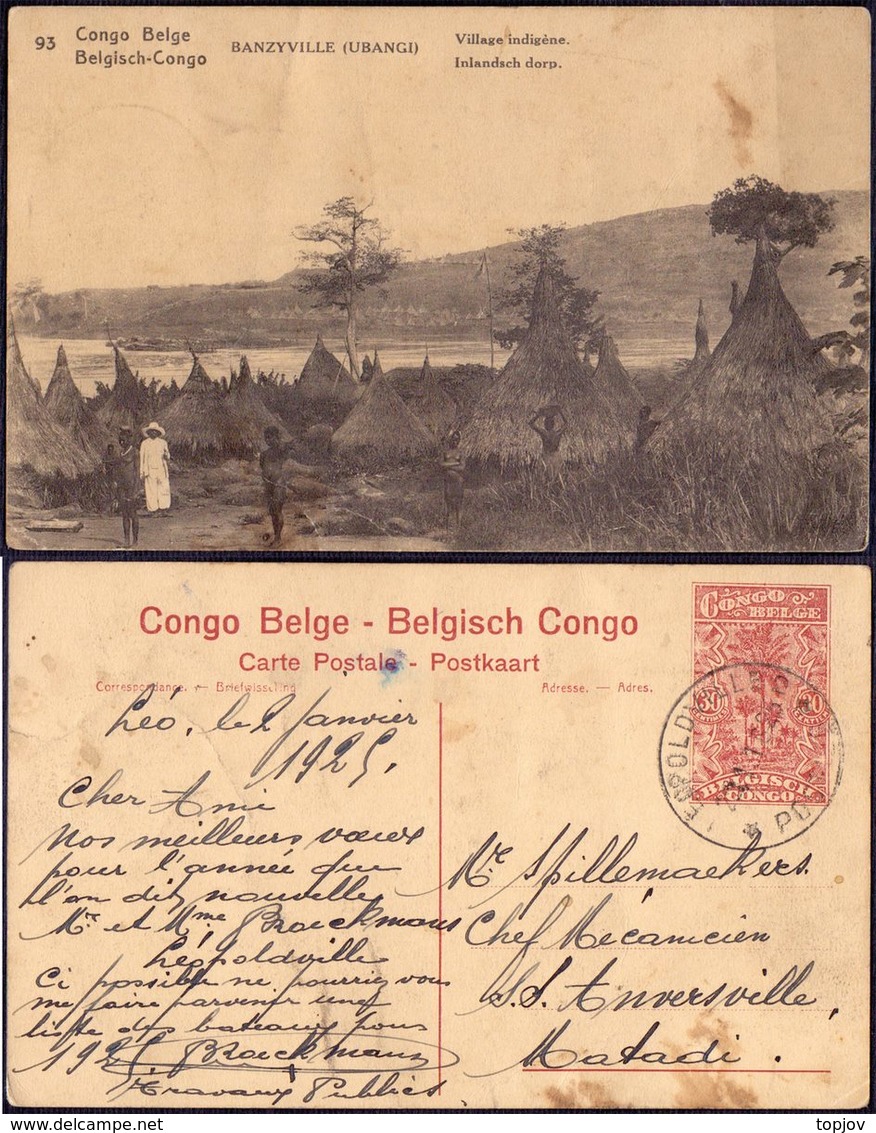 93
Congo Belge
Belgisch-Congo
BANZYVILLE (UBANGI)
Village indigène.
Inlandsch dorp.
Congo Belge - Belgisch Congo
Carte Postale - Postkaart
Correspondance. — Briefwisseling
Adresse. — Adres.
CONGO BELGE
30
BELGISCH CONGO
LEOPOLDVILLE
Léo, le 2 Janvier
1925.
Cher Ami
Nos meilleurs vœux
pour l'année que
l'on dit nouvelle
Mr et Mme Broeckmans
Léopoldville
Ci possible ne pourriez vous
me faire parvenir une
liste des bateaux pour
1925. Broeckmans
Travaux Publics
Mr Spillemaekers.
Chef Mécanicien
S.S. Anversville,
Matadi.
topjov